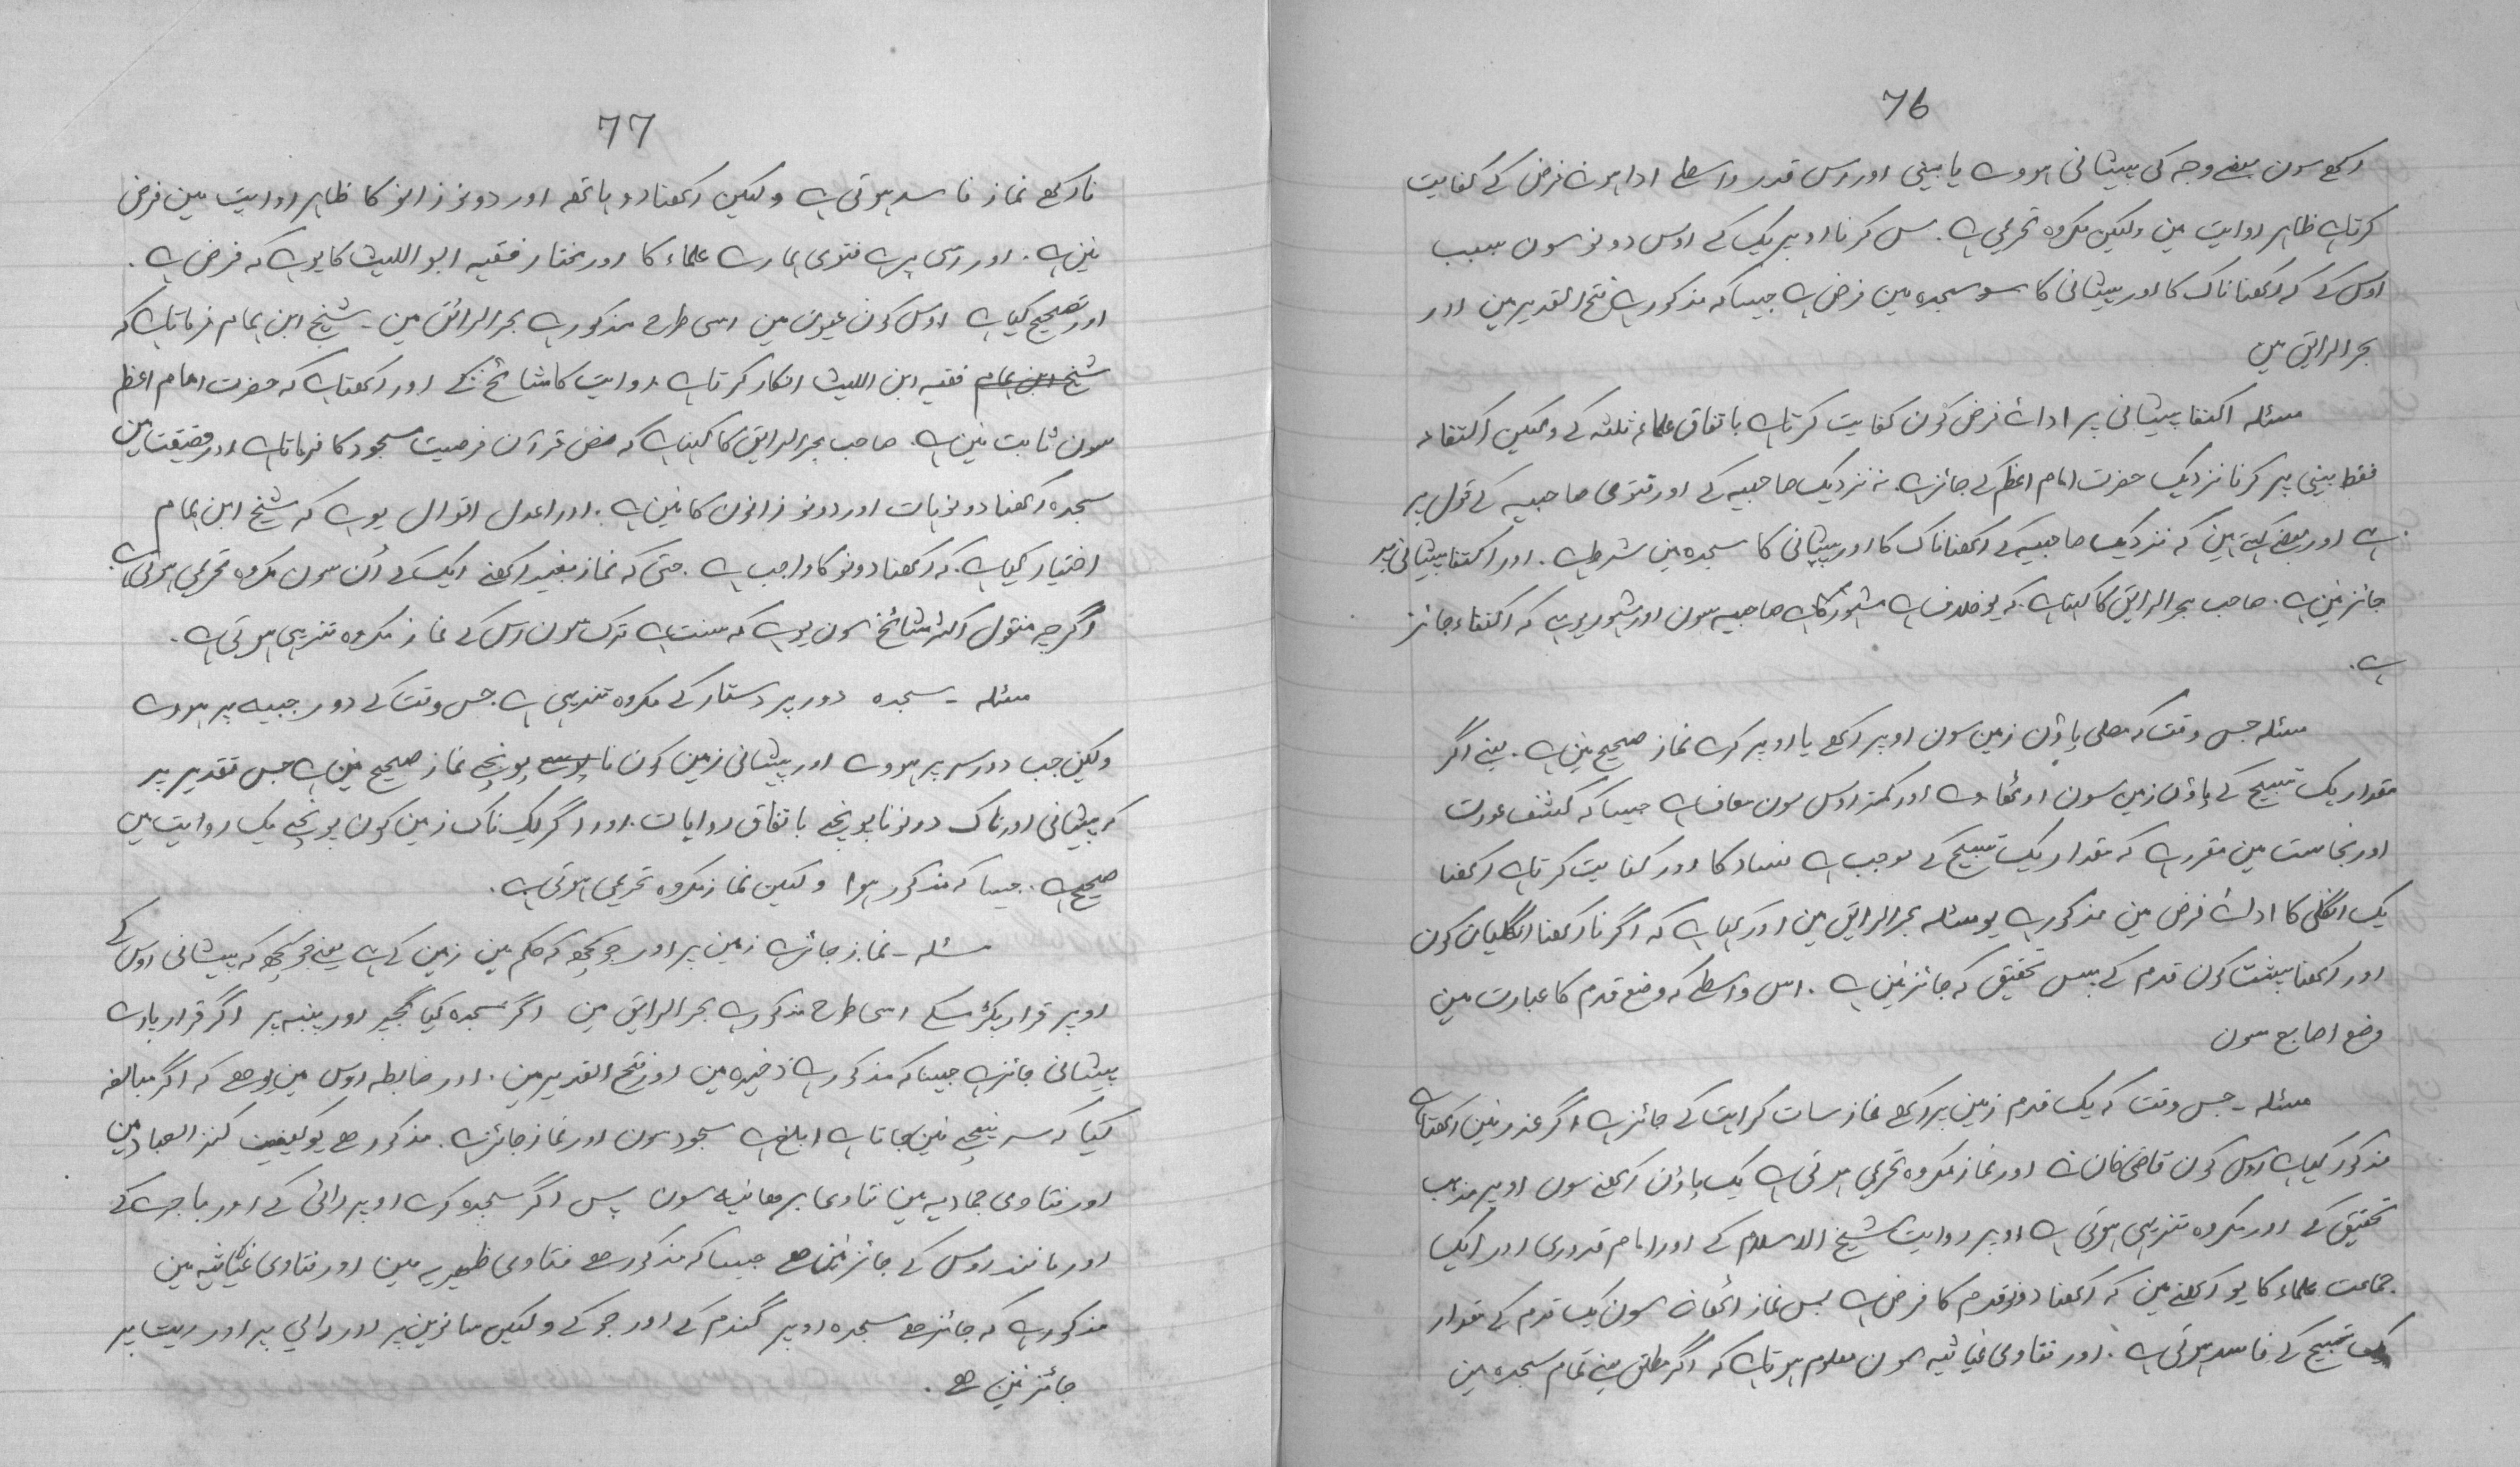 76
رکھے سون بعضے وجہ کی پیشانی ہووے یا بینی اور اس قدر واسطے ادا ہونے فرض کے کفایت
کرتا ہے ظاہر روایت مین ولیکن مکروہ تحریمی ہے۔ بس کرنا اوپر یک کے اوس دونو سون بسبب
اوس کے کہ رکھنا ناک کا اور پیشانی کا سجدہ مین فرض ہے جیسا کہ مذکور ہے فتح القدیر مین اور
بحر الرایق مین
مسئلہ اکتفا پیشانی پر ادائے فرض کون کفایت کرتا ہے باتفاق علماء ثلثہ کے ولیکن اکتفاء
فقط بینی پر کرنا نزدیک حضرت امام اعظم کے جائز ہے۔ نہ نزدیک صاحبیہ کے اور فتوی صاحبیہ کے قول پر
ہے اور بعضے کہتے ہین کہ نزدیک صاحبیہ کے رکھنا ناک کا اور پیشانی کا سجدہ مین شرط ہے۔ اور اکتفا پیشانی پر
جائز نین ہے۔ صاحب بحر الرایق کا کہتا ہے کہ یو خلاف ہے مشہور کا صاحبیہ سون اور مشہور یو ہے کہ اکتفاء جائز
ہے۔
مسئلہ جس وقت کہ مصلی پاؤن زمین سون اوپر رکھے یا اوپر کرے نماز صحیح نین ہے۔ یعنے اگر
مقدار یک تسبیح کے پاؤن زمین سون اوٹھاوے اور کمتر اوس سون معاف ہے جیسا کہ کشف عورت
اور نجاست مین مقرر ہے کہ مقدار یک تسبیح کے موجب ہے فساد کا اور کفایت کرتا ہے رکھنا
یک انگلی کا ادائے فرض مین مذکور ہے یو مسئلہ بحر الرایق مین اور کہیا ہے کہ اگر نا رکھنا انگلیان کون
اور رکھنا پشت کون قدم کے پس تحقیق کہ جائز نین ہے۔ اس واسطے کہ وضع قدم کا عبارت مین
وضع اصابع سون
مسئلہ - جس وقت کہ یک قدم زمین پر رکھے نماز سات کراہت کے جائز ہے اگر عذر نین رکھتا ہے
مذکور کیا ہے اوس کون قاضی خان نے اور نماز مکروہ تحریمی ہوتی ہے یک پاؤن رکھنے سون اوپر مذہب
تحقیق کے اور مکروہ تنزیہی ہوتی ہے اوپر روایت شیخ الاسلام کے اور امام قدوری اور ایک
جماعت علماء کا یو رکھنے مین کہ رکھنا دونو قدم کا فرض ہے بس نماز اٹھانے سون یک قدم کے مقدار
یک تسبیح کے فاسد ہوتی ہے۔ اور فتاوی غیاثیہ سون معلوم ہوتا ہے کہ اگر مطلق یعنے تمام سجدہ مین
77
نا رکھے نماز فاسد ہوتی ہے ولیکن رکھنا دو ہاتھ اور دونو زانو کا ظاہر روایت مین فرض
نین ہے۔ اور اسی پر ہے فتوی ہمارے علماء کا اور مختار فقیہ ابو اللیث کا یو ہے کہ فرض ہے۔
اور تصحیح کیا ہے اوس کون عیون مین اسی طرح مذکور ہے بحر الرائق مین - شیخ ابن ہمام فرماتا ہے کہ
شیخ ابن ہمام فقیہ ابن اللیث انکار کرتا ہے روایت کا مشائخ کے اور رکھتا ہے کہ حضرت امام اعظم
سون ثابت نین ہے صاحب بحر الرایق کا کہتا ہے کہ نص قرآن فرضیت سجود کا فرماتا ہے اور حقیقت مین
سجدہ رکھنا دونو ہات اور دونو زانون کا نین ہے۔ اور اعدل اقوال یو ہے کہ شیخ ابن ہمام
اختیار کیا ہے۔ کہ رکھنا دونو کا واجب ہے۔ حتی کہ نماز بغیر رکھنے ایک کے اُن سون مکروہ تحریمی ہوتی ہے
اگرچہ منقول اکثر مشائخ سون یو ہے کہ سنت ہے ترک سون اس کے نماز مکروہ تنزیہی ہوتی ہے۔
مسئلہ - سجدہ دور پر دستار کے مکروہ تنزیہی ہے جس وقت کے دور جبیہ پر ہووے
ولیکن جب دور سر پر ہووے اور پیشانی زمین کون نا پونچے نماز صحیح نین ہے جس تقدیر پر
کہ پیشانی اور ناک دونو نا پونچے باتفاق روایات۔ اور اگر یک ناک زمین کون پونچے یک روایت مین
صحیح ہے۔ جیسا کہ مذکور ہوا ولیکن نماز مکروہ تحریمی ہوتی ہے۔
مسئلہ - نماز جائز ہے زمین پر اور جو کچھ کہ حکم مین زمین کے ہے یعنے جو کچھ کہ پیشانی اوس کے
اوپر قرار پکڑ سکے اسی طرح مذکور ہے بحر الرایق مین اگر سجدہ کیا گچیر اور پنبہ پر اگر قرار پاوے
پیشانی جائز ہے جیسا کہ مذکور ہے ذخیرہ مین اور فتح القدیر مین۔ اور ضابطہ اوس مین یو ھے کہ اگر مبالغہ
کیا کہ سر نیچے نین جاتا ہے ابلغ ہے سجود سون اور نماز جائز ہے۔ مذکور ھے یو کیفیت کنز العباد مین
اور فتاوی حمادیہ مین فتاوی برھانیہ سون پس اگر سجدہ کرے اوپر رائی کے اور باجرے کے
اور مانند اوس کے جائز نین ھے جیسا کہ مذکور ھے فتاوی ظہیریہ مین اور فتاوی غیاثیہ مین
مذکور ہے کہ جائز ھے سجدہ اوپر گندم کے اور جو کے ولیکن سانوین پر اور رالی پر اور ریت پر
جائز نین ھے۔